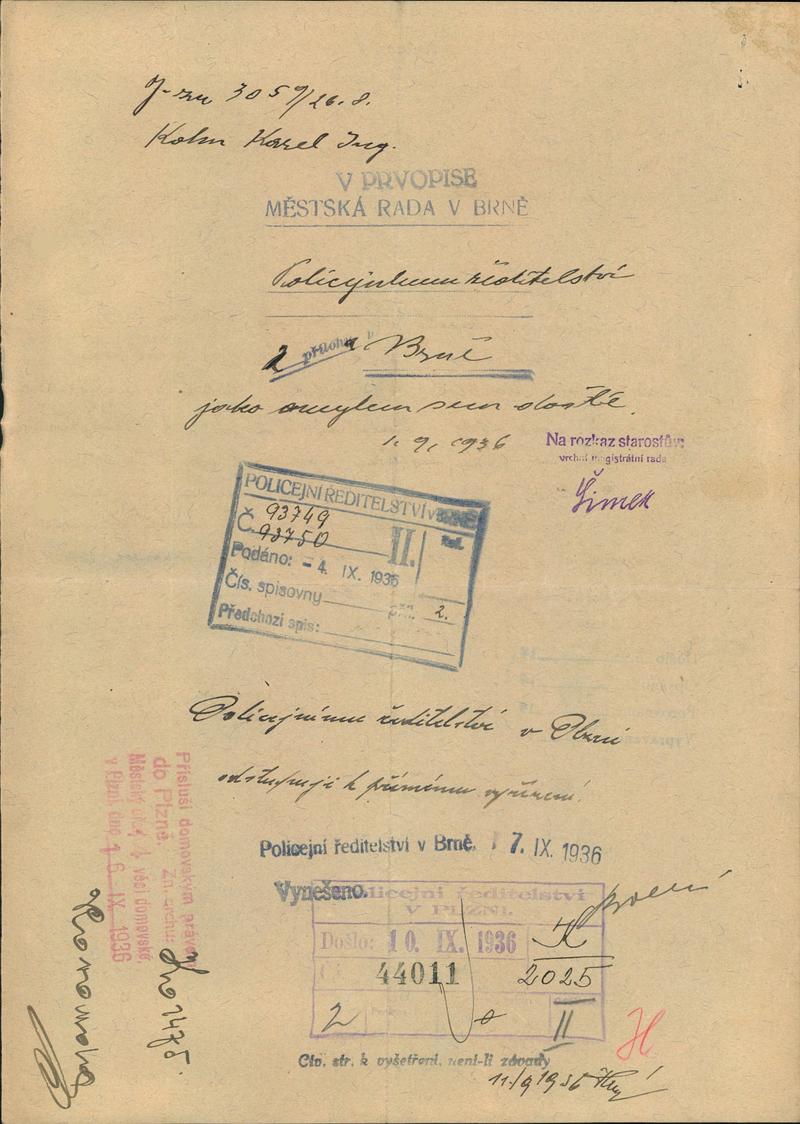 J-zn 3059/26.8.
Kohn Karel Ing.
V PRVOPISE
MĚSTSKÁ RADA V BRNĚ
Policejnímu ředitelství
2 příloha
v Brně
jako omylem sem došlé.
1. 9. 1936
Na rozkaz starostův:
vrchní magistrátní rada
Šimek
POLICEJNÍ ŘEDITELSTVÍ v BRNĚ
Č. 93749
93750
II.
Podáno: - 4. IX. 1936
Čís. spisovny
příl. 2.
Předchozí spis:
Policejnímu ředitelství v Plzni
odstupuji k přímému vyřízení.
Policejní ředitelství v Brně, 7. IX. 1936
Vynešeno.
Policejní ředitelství
V PLZNI.
Došlo: 10. IX. 1936
K
Čís. 44011
2025
2
II
H
Civ. str. k vyšetření, není-li závady
11/9 1936
Přísluší domovským právem
do Plzně.
Zn. archu:
Městský úřad, věci domovské,
v Plzni, dne 16. IX. 1936